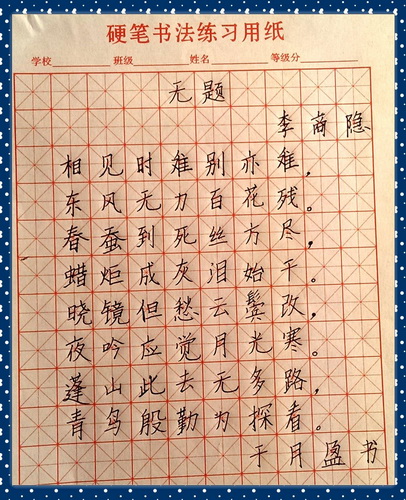 硬笔书法练习用纸
学校 班级 姓名 等级分
无题
李商隐
相见时难别亦难，
东风无力百花残。
春蚕到死丝方尽，
蜡炬成灰泪始干。
晓镜但愁云鬓改，
夜吟应觉月光寒。
蓬山此去无多路，
青鸟殷勤为探看。
于月盈书